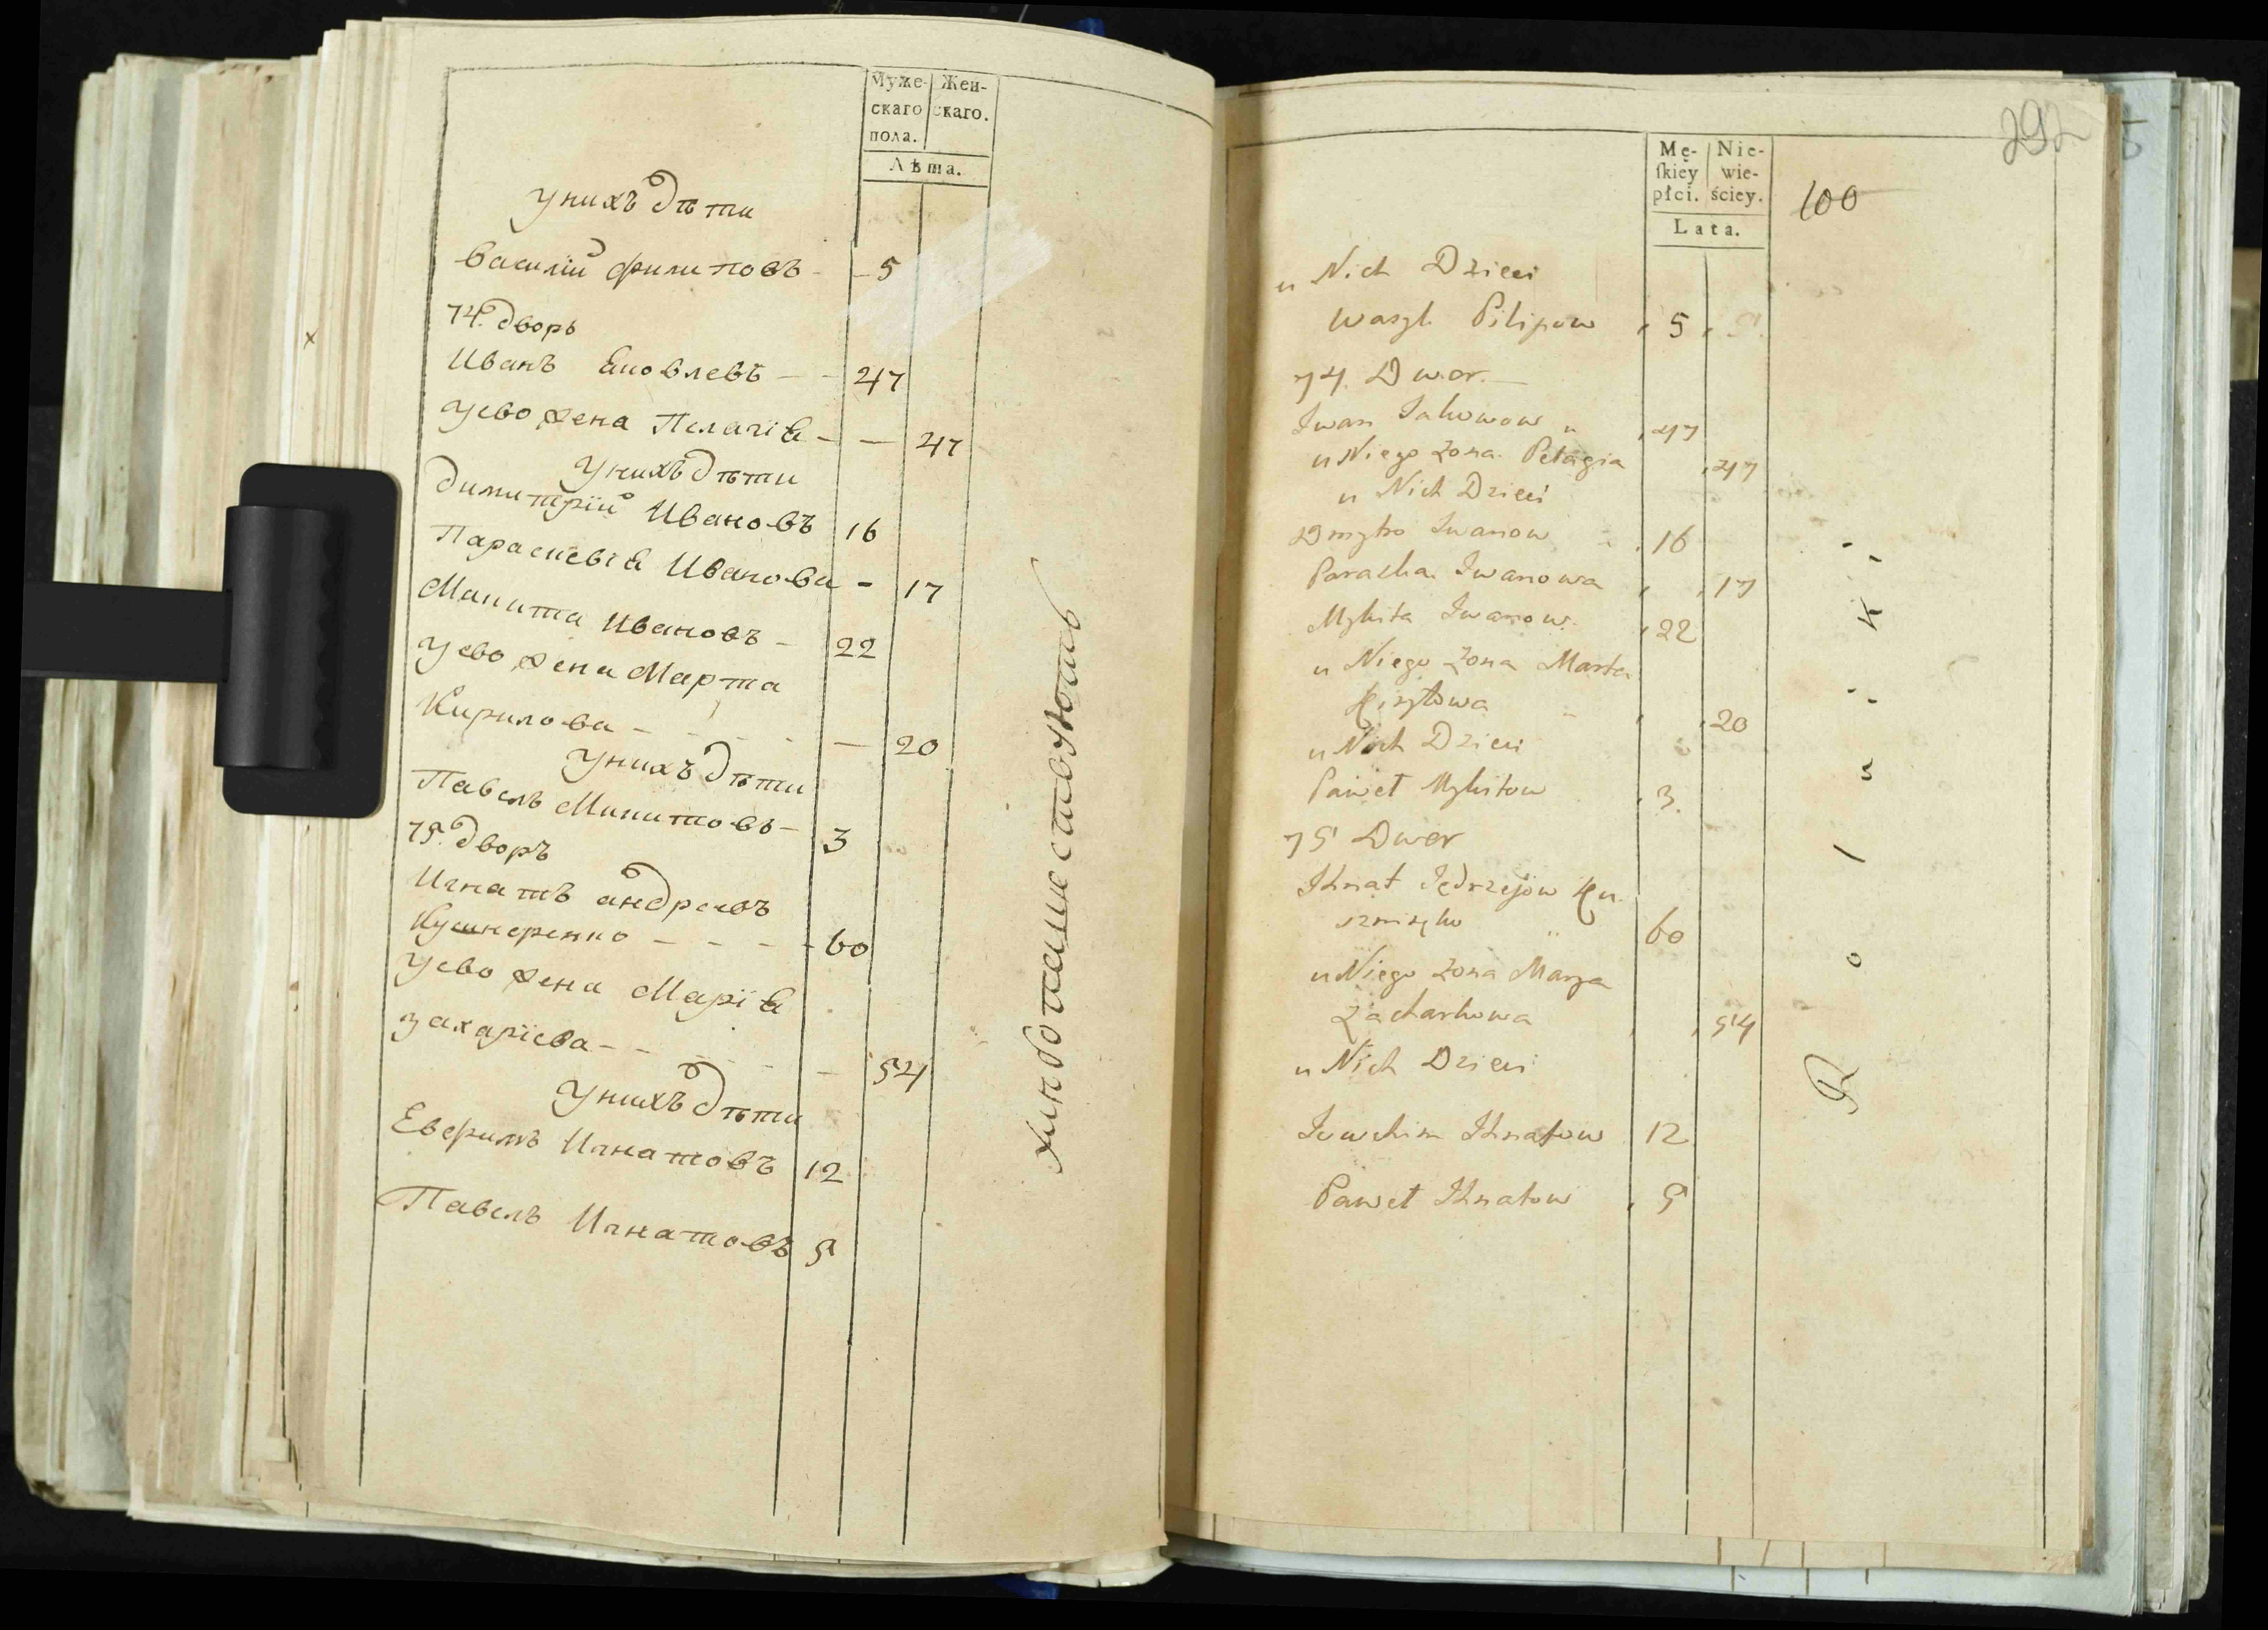 Муже-
скаго
пола.
Жен-
скаго.
Лѣта.
у нихъ дѣти
Василій Филиповъ - - 5
74. дворъ
Иванъ Яковлевъ - - 47
у ево жена Пелагія - - 47
у нихъ дѣти
Димитрій Ивановъ 16
Параскевія Иванова - 17
Микита Ивановъ - 22
у ево жена Марта
Кирилова - - - - - 20
у нихъ дѣти
Павелъ Микитовъ - 3
75. дворъ
Игнатъ Андреевъ
Кушнеренко - - - - 60
у ево жена Марія
Захаріева - - - - - 54
у нихъ дѣти
Евфимъ Игнатовъ 12
Павелъ Игнатовъ 5
хлѣбопашествуютъ
292
Mę-
ſkiey
płci.
Nie-
wie-
ściey.
Lata.
100
u Nich Dzieci
Wasyl Pilipow 5
74. Dwor.
Iwan Jakowow 47
u Niego żona Pelagia 47
u Nich Dzieci
Dmytro Iwanow 16
Paraska Iwanowa 17
Mykita Iwanow 22
u Niego żona Marta
Kiryłowa 20
u Nich Dzieci
Paweł Mykitow 3.
75 Dwor
Ihnat Jędrzejow Ku
60
u Niego żona Marya
Zacharkowa 54
u Nich Dzieci
Ihnatow 12
Paweł Ihnatow 5
Rolniki